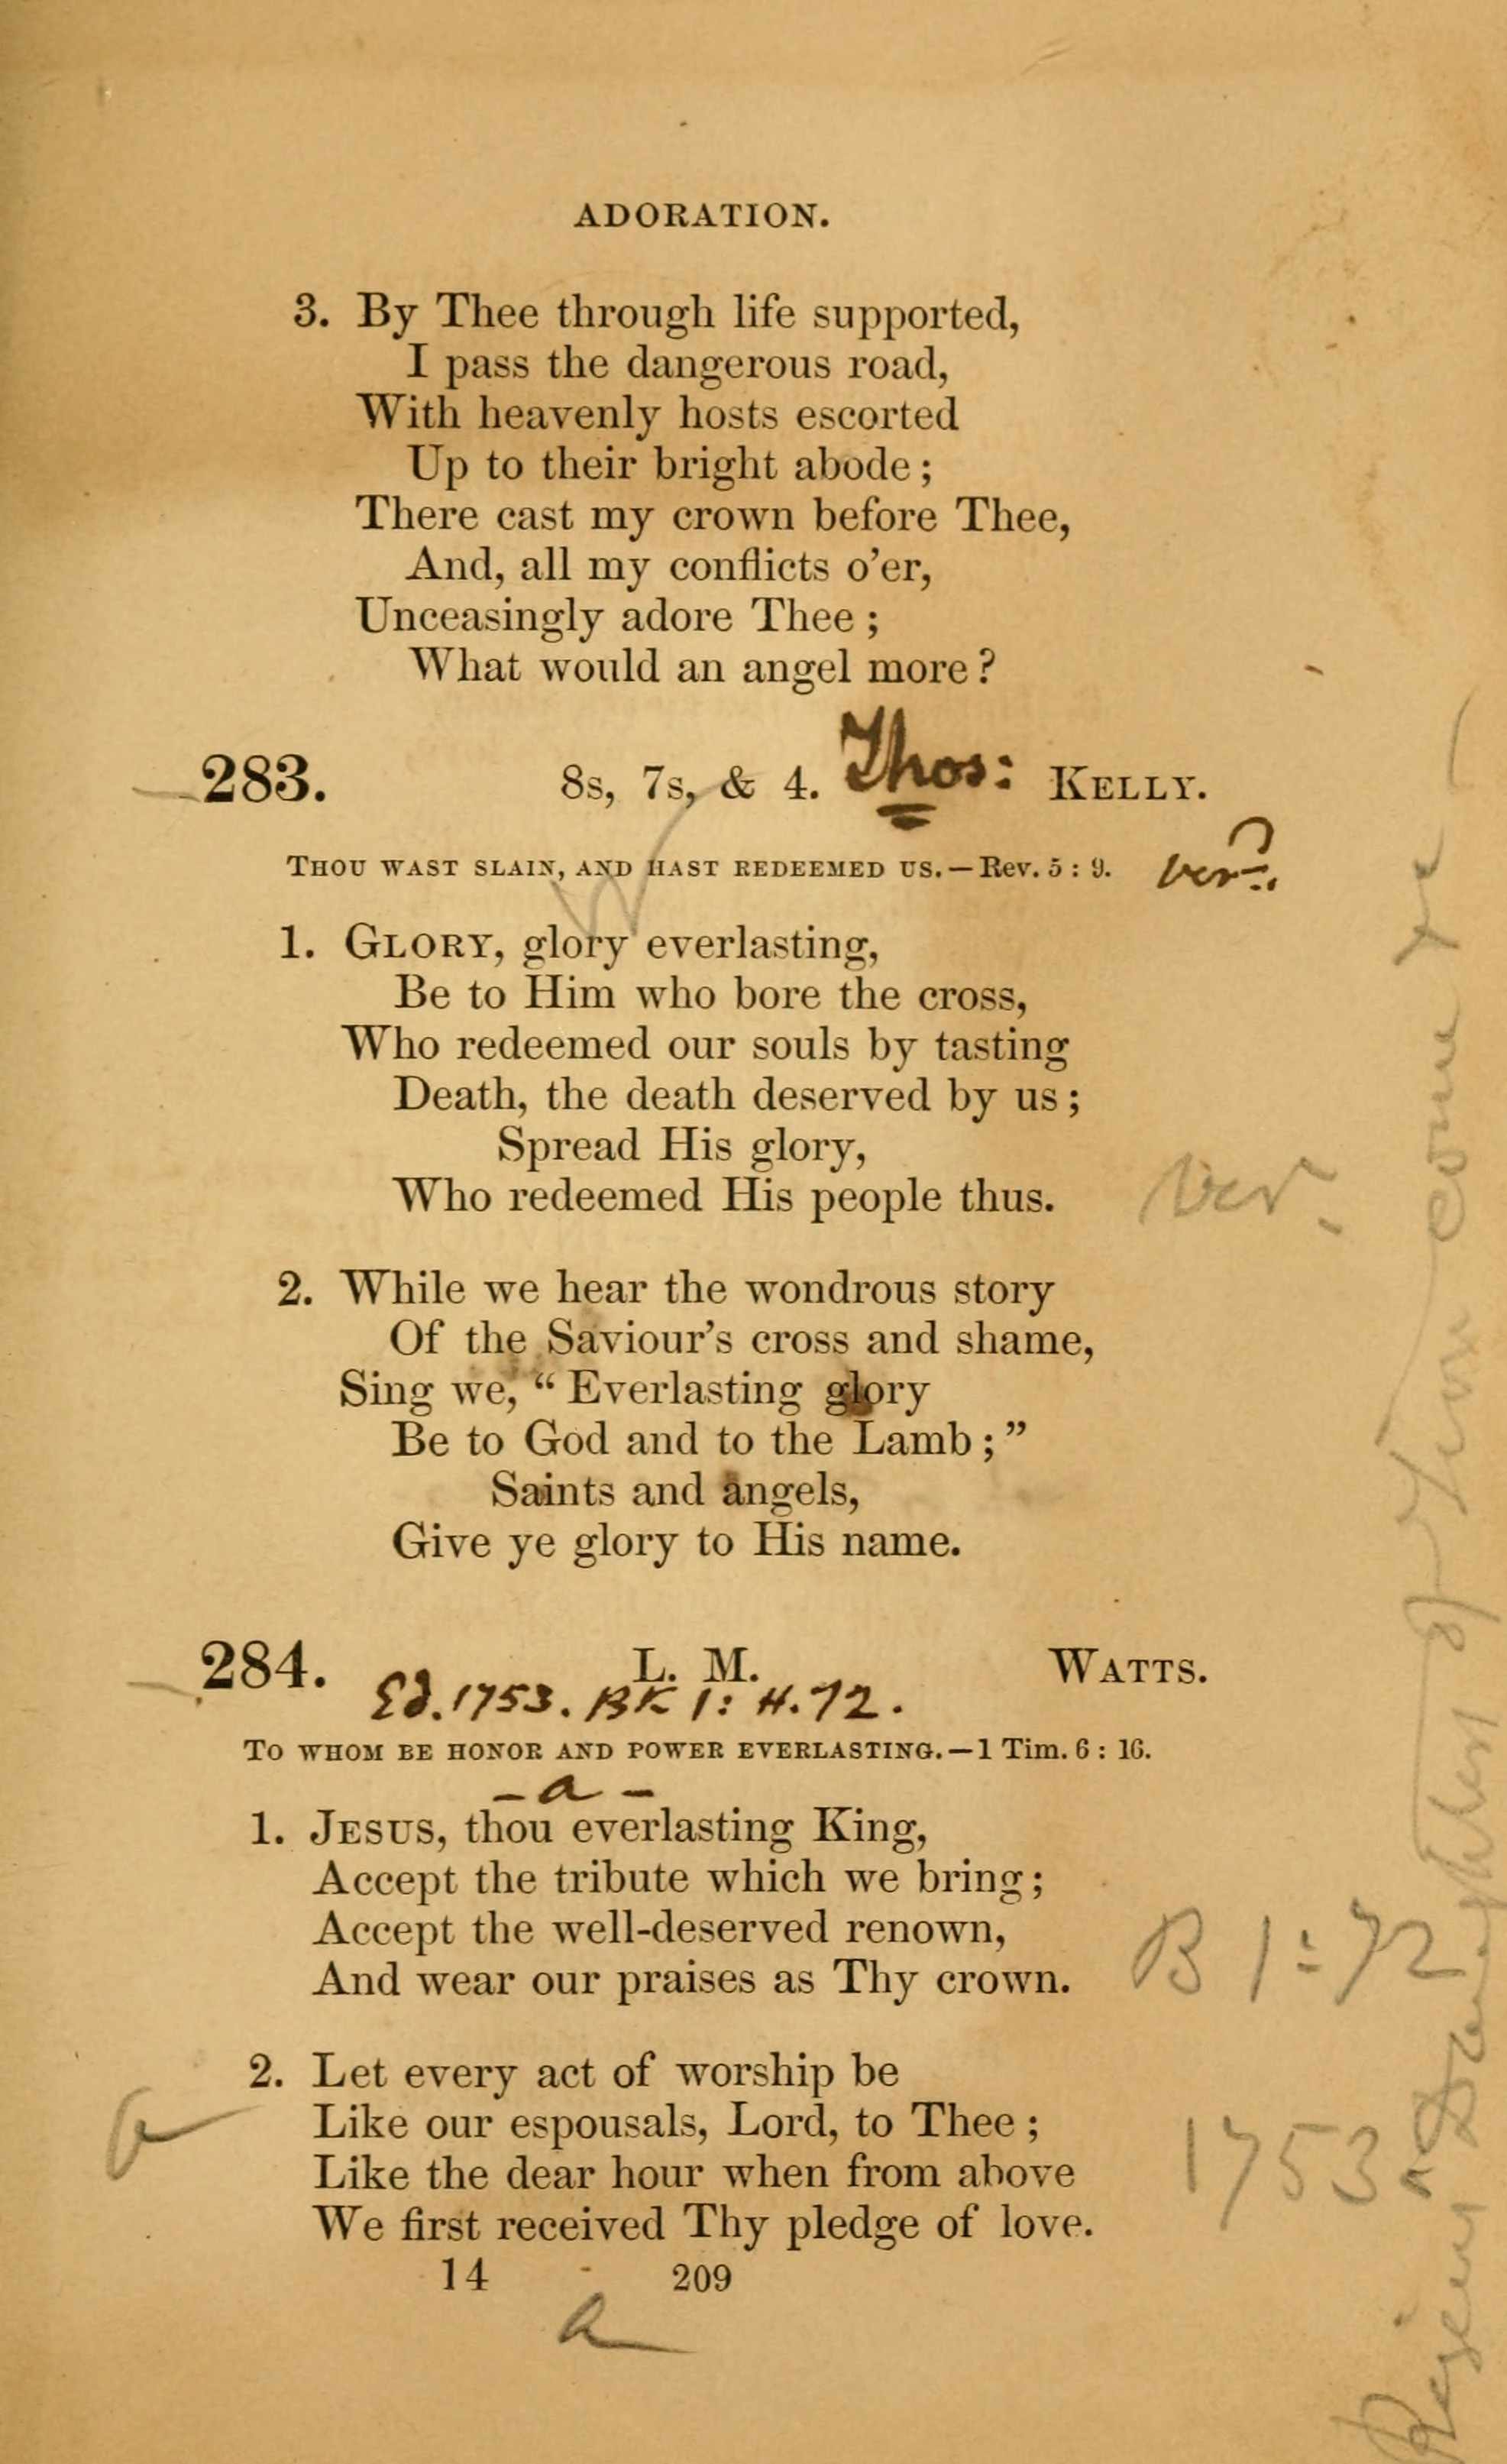 ADORATION.
3. By Thee through life supported,
I pass the dangerous road,
With heavenly hosts escorted
Up to their bright abode;
There cast my crown before Thee,
And, all my conflicts o'er,
Unceasingly adore Thee;
What would an angel more?
283. 8s, 7s, & 4. Thos: KELLY.
THOU WAST SLAIN, AND HAST REDEEMED US.—Rev. 5 : 9. ver.?
1. GLORY, glory everlasting,
Be to Him who bore the cross,
Who redeemed our souls by tasting
Death, the death deserved by us;
Spread His glory,
Who redeemed His people thus. ver.
2. While we hear the wondrous story
Of the Saviour's cross and shame,
Sing we, "Everlasting glory
Be to God and to the Lamb;"
Saints and angels,
Give ye glory to His name.
284. L. M. WATTS.
Ed. 1753. BK 1: H. 72.
TO WHOM BE HONOR AND POWER EVERLASTING.—1 Tim. 6 : 16.
- a -
1. JESUS, thou everlasting King,
Accept the tribute which we bring;
Accept the well-deserved renown,
And wear our praises as Thy crown. B 1:72
2. Let every act of worship be
Like our espousals, Lord, to Thee;
Like the dear hour when from above
We first received Thy pledge of love. 1753
14 209
a